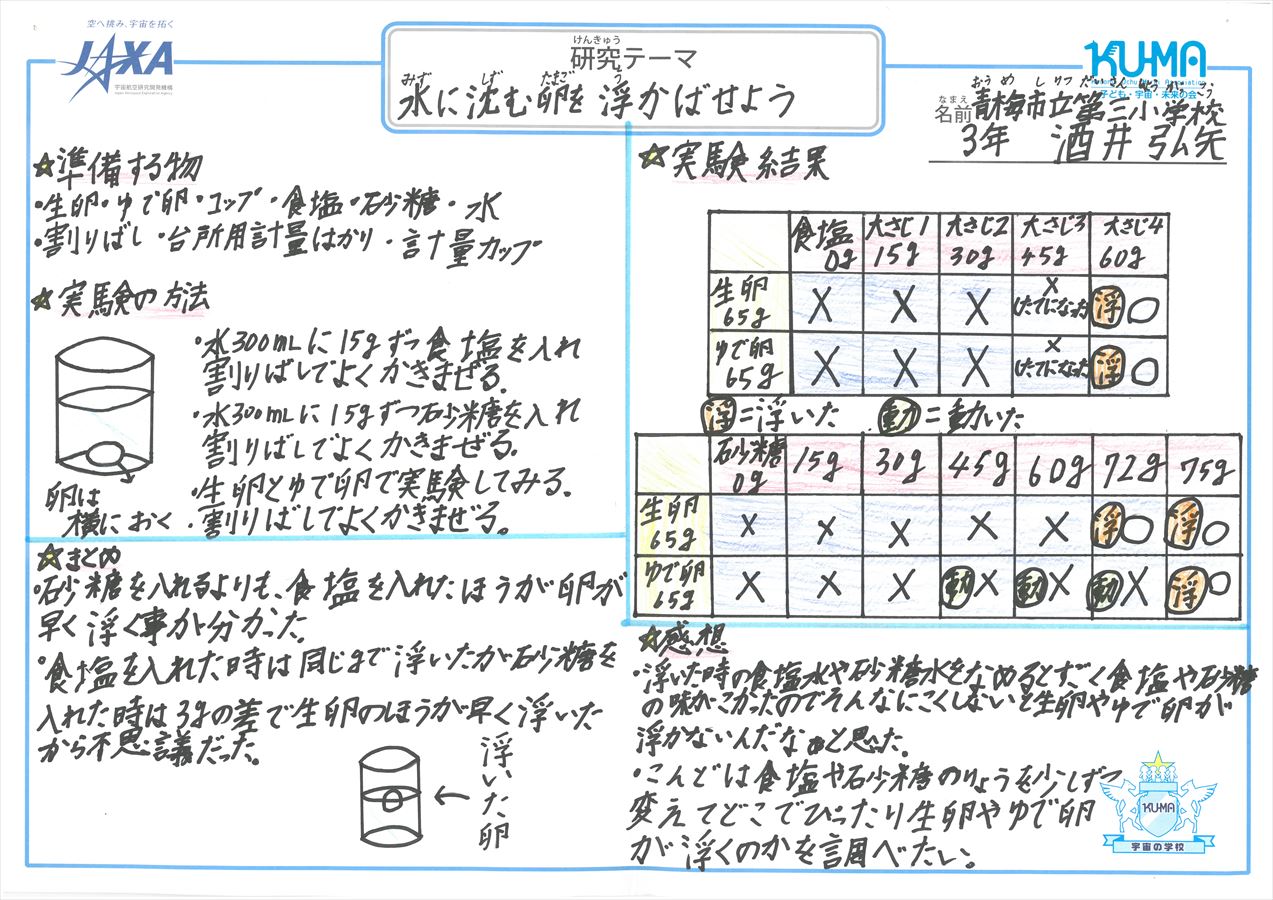 空へ挑み、宇宙を拓く
JAXA
宇宙航空研究開発機構
Japan Aerospace Exploration Agency
けんきゅう
研究テーマ
みず しず たまご う
水に沈む卵を浮かばせよう
KUMA
子ども・宇宙・未来の会
おうめしりつだいさんしょうがっこう
なまえ
名前 青梅市立第三小学校
3年 酒井弘矢
☆準備する物
・生卵・ゆで卵・コップ・食塩・砂糖・水
・割りばし・台所用計量はかり・計量カップ
☆実験の方法
・水300mLに15gずつ食塩を入れ
割りばしでよくかきまぜる。
・水300mLに15gずつ砂糖を入れ
割りばしでよくかきまぜる。
・生卵とゆで卵で実験してみる。
・割りばしでよくかきまぜる。
卵は
横におく
☆まとめ
・砂糖を入れるよりも、食塩を入れたほうが卵が
早く浮く事が分かった。
・食塩を入れた時は同じまで浮いたが砂糖を
入れた時は3gの差で生卵のほうが早く浮いた
から不思議だった。
←浮いた卵
☆実験結果
食塩0g 大さじ1 15g 大さじ2 30g 大さじ3 45g 大さじ4 60g
生卵65g × × × ×(たてになった) 浮○
ゆで卵65g × × × ×(たてになった) 浮○
浮=浮いた 動=動いた
砂糖0g 15g 30g 45g 60g 72g 75g
生卵65g × × × × × 浮○ 浮○
ゆで卵65g × × × 動× 動× 動× 浮○
☆感想
・浮いた時の食塩水や砂糖水をなめるとすごく食塩や砂糖
の味がこかったのでそんなにこくしないと生卵やゆで卵が
浮かないんだなぁと思った。
・こんどは食塩や砂糖のりょうを少しずつ
変えてどこでぴったり生卵やゆで卵
が浮くのかを調べたい。
KUMA
宇宙の学校